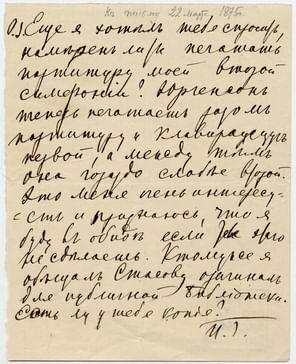 Къ письму 22 март. 1875г.
P.S. Еще я хотѣлъ тебя спросить,
намѣренъ ли ты печатать
партитуру моей второй
симфоніи? Юргенсонъ
теперь печатаетъ разомъ
партитуру и клавираусцугъ
первой, а между тѣмъ
она гораздо слабѣе второй.
Это меня очень интересу-
етъ и признаюсь, что я
буду въ обидѣ если ты этого
не сдѣлаешь. Къ тому же я
обѣщалъ Стасову оригиналъ
для публичной библіотеки.
Есть ли у тебя копія?